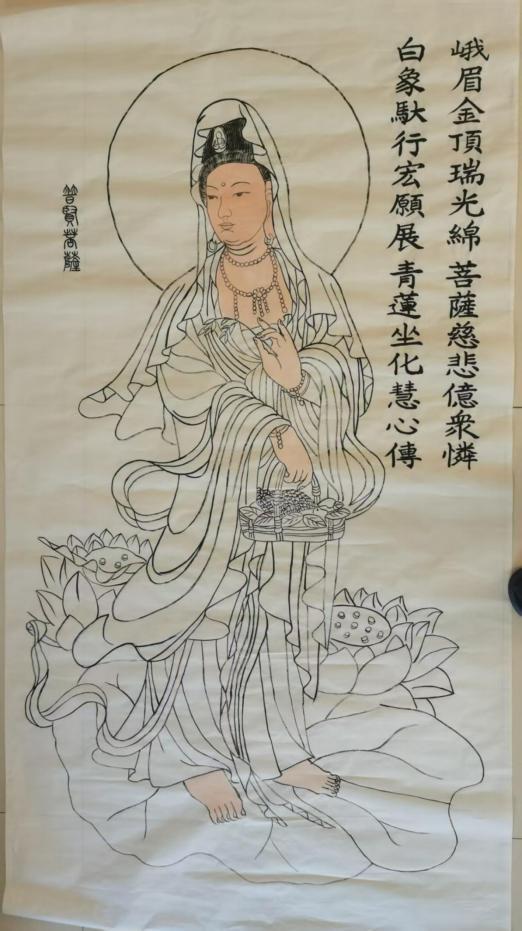 峨眉金頂瑞光綿 菩薩慈悲億衆憐
白象馱行宏願展 青蓮坐化慧心傳
普賢菩薩